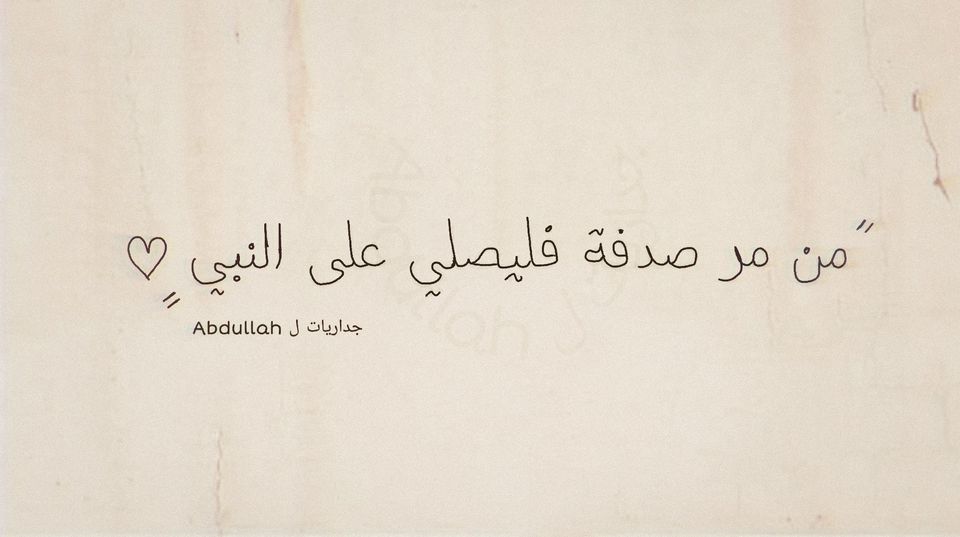 "من مر صدفة فليصلي على النبي ♡"
جداريات ل Abdullah